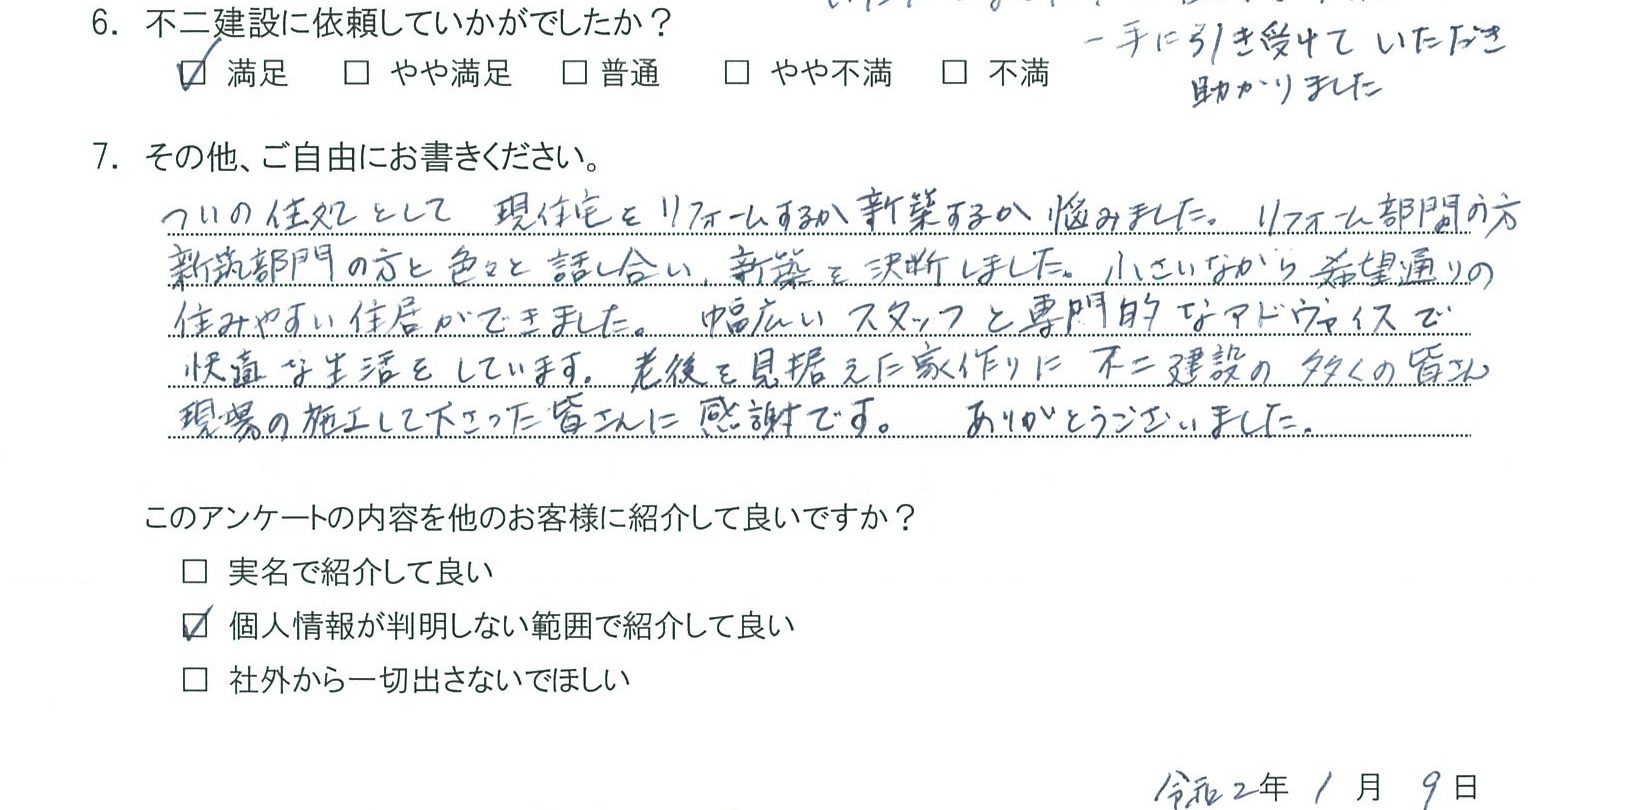 6. 不二建設に依頼していかがでしたか？
一手に引き受けていただき
☑ 満足 □ やや満足 □ 普通 □ やや不満 □ 不満
助かりました
7. その他、ご自由にお書きください。
ついの住処として 現住宅をリフォームするか新築するか悩みました。リフォーム部門の方
新築部門の方と色々と話し合い、新築を決断しました。小さいながら希望通りの
住みやすい住居ができました。 幅広いスタッフと専門的なアドヴァイスで
快適な生活をしています。老後を見据えた家作りに不二建設の多くの皆さん
現場の施工して下さった皆さんに感謝です。 ありがとうございました。
このアンケートの内容を他のお客様に紹介して良いですか？
□ 実名で紹介して良い
☑ 個人情報が判明しない範囲で紹介して良い
□ 社外から一切出さないでほしい
令和2年 1月 9日